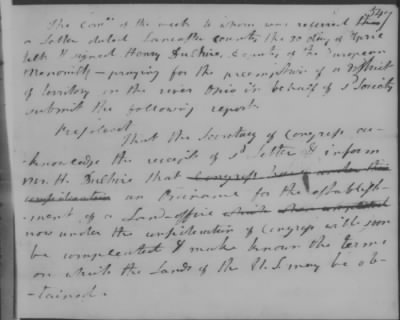 347
The Com.ee of the week to whom was referred the
a Letter dated Lancaster County the 20 day of April
1785 & signed Henry Duchire, County of the European
Menonists – praying for the preemption of a District
of territory on the river Ohio in behalf of s.d Society
submit the following report
Resolved
That the Secretary of Congress ac-
-knowledge the receipt of s.d Letter & inform
Mr. H. Duchire that Congress have under their
consideration an Ordinance for the establish-
-ment of a Land-office which when completed
now under the consideration of Congress will soon
be compleated & make known the terms
on which the Lands of the U.S. may be ob-
-tained.